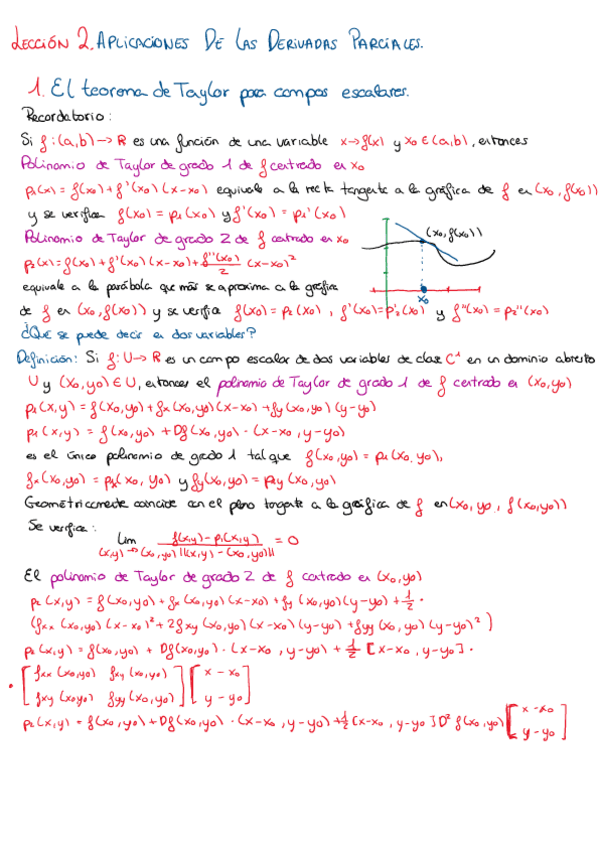 Lección 2. Aplicaciones De Las Derivadas Parciales.
1. El teorema de Taylor para campos escalares.
Recordatorio:
Si f: (a,b) → R es una función de una variable x→f(x) y x₀ ∈ (a,b), entonces
Polinomio de Taylor de grado 1 de f centrado en x₀
p₁(x) = f(x₀) + f'(x₀)(x-x₀) equivale a la recta tangente a la gráfica de f en (x₀, f(x₀))
y se verifica f(x₀) = p₁(x₀) y f'(x₀) = p₁'(x₀)
Polinomio de Taylor de grado 2 de f centrado en x₀
(x₀, f(x₀))
p₂(x) = f(x₀) + f'(x₀)(x-x₀) + f''(x₀)/2 (x-x₀)²
equivale a la parábola que más se aproxima a la gráfica
x₀
de f en (x₀, f(x₀)) y se verifica f(x₀) = p₂(x₀), f'(x₀) = p'₂(x₀) y f''(x₀) = p₂''(x₀)
¿Qué se puede decir en dos variables?
Definición: Si f: U → R es un campo escalar de dos variables de clase C¹ en un dominio abierto
U y (x₀,y₀) ∈ U, entonces el polinomio de Taylor de grado 1 de f centrado en (x₀,y₀)
p₁(x,y) = f(x₀,y₀) + fx(x₀,y₀)(x-x₀) + fy(x₀,y₀)(y-y₀)
p₁(x,y) = f(x₀,y₀) + Df(x₀,y₀) · (x-x₀, y-y₀)
es el único polinomio de grado 1 tal que f(x₀,y₀) = p₁(x₀,y₀),
fx(x₀,y₀) = p₁x(x₀,y₀) y fy(x₀,y₀) = p₁y(x₀,y₀)
Geométricamente coincide con el plano tangente a la gráfica de f en (x₀, y₀, f(x₀,y₀))
Se verifica:
lim f(x,y) - p₁(x,y) = 0
(x,y) → (x₀,y₀) ||(x,y) - (x₀,y₀)||
El polinomio de Taylor de grado 2 de f centrado en (x₀,y₀)
p₂(x,y) = f(x₀,y₀) + fx(x₀,y₀)(x-x₀) + fy(x₀,y₀)(y-y₀) + 1/2 ·
(fxx(x₀,y₀)(x-x₀)² + 2fxy(x₀,y₀)(x-x₀)(y-y₀) + fyy(x₀,y₀)(y-y₀)²)
p₂(x,y) = f(x₀,y₀) + Df(x₀,y₀) · (x-x₀, y-y₀) + 1/2 [x-x₀, y-y₀] ·
· [fxx(x₀,y₀) fxy(x₀,y₀)] [x - x₀]
[fxy(x₀,y₀) fyy(x₀,y₀)] [y - y₀]
p₂(x,y) = f(x₀,y₀) + Df(x₀,y₀) · (x-x₀, y-y₀) + 1/2 [x-x₀, y-y₀] D²f(x₀,y₀) [x-x₀
y-y₀]